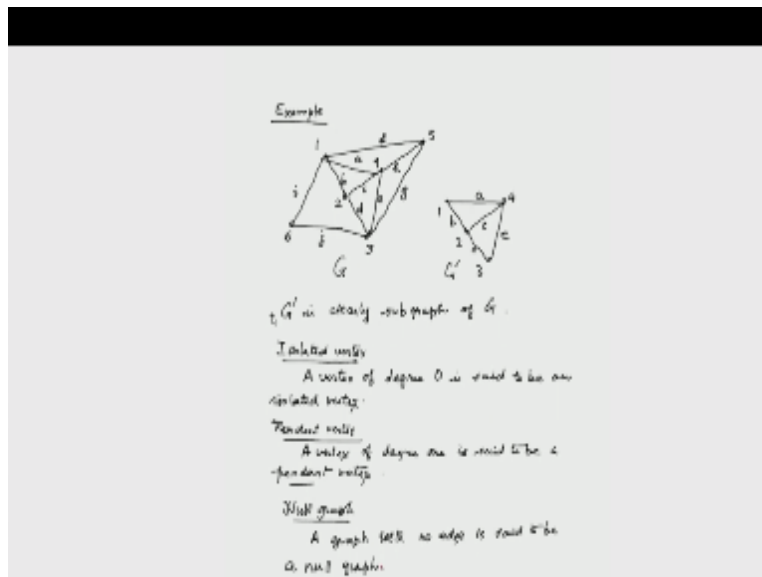 Example
1 f 5
a 4 h
i b c
2 d e g
6 j 3
G
a 4
1 b c e
2 d
G' 3
G' is clearly subgraph of G.
Isolated vertex
A vertex of degree 0 is said to be an
isolated vertex.
Pendent vertex
A vertex of degree one is said to be a
pendent vertex.
Null graph
A graph with no edge is said to be
a null graph.